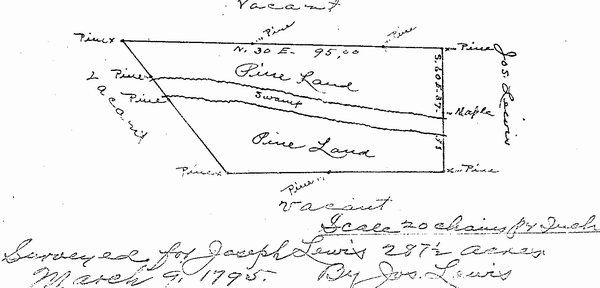 Vacant
Pine
Pine
Pinex
N. 30 E- 95,00
x-Pine
Jos. Lewis
Pine Land
Vacant
Pine
Pine
Swamp
Maple
Pine Land
Pinex
x-Pine
Pine
Vacant
Scale 20 chains pr Inch
Surveyed for Joseph Lewis 287½ Acres.
March 9, 1795. By Jos. Lewis